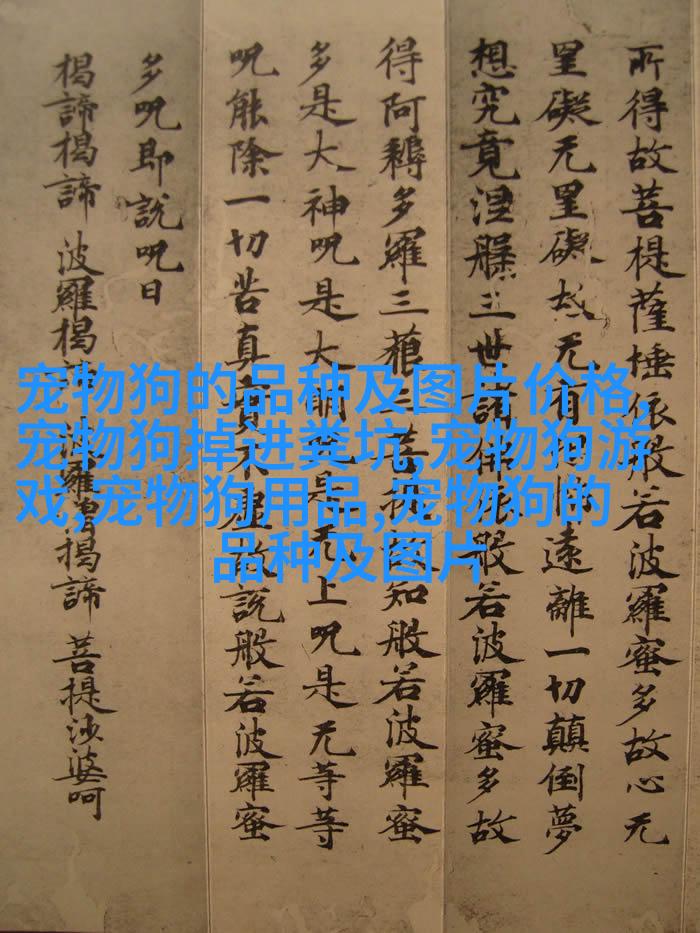 所得故菩提薩埵依般若波羅蜜多故心无
罣礙无罣礙故无有恐怖遠離一切顛倒夢
想究竟涅槃三世諸佛依般若波羅蜜多故
得阿耨多羅三藐三菩提故知般若波羅蜜
多是大神呪是大明呪是无上呪是无等等
呪能除一切苦真實不虛故說般若波羅蜜
多呪即說呪曰
揭諦揭諦 波羅揭諦 波羅僧揭諦 菩提沙婆呵
宠物狗的品种及图片价格,
宠物狗掉进粪坑,宠物狗游
戏,宠物狗用品,宠物狗的
品种及图片